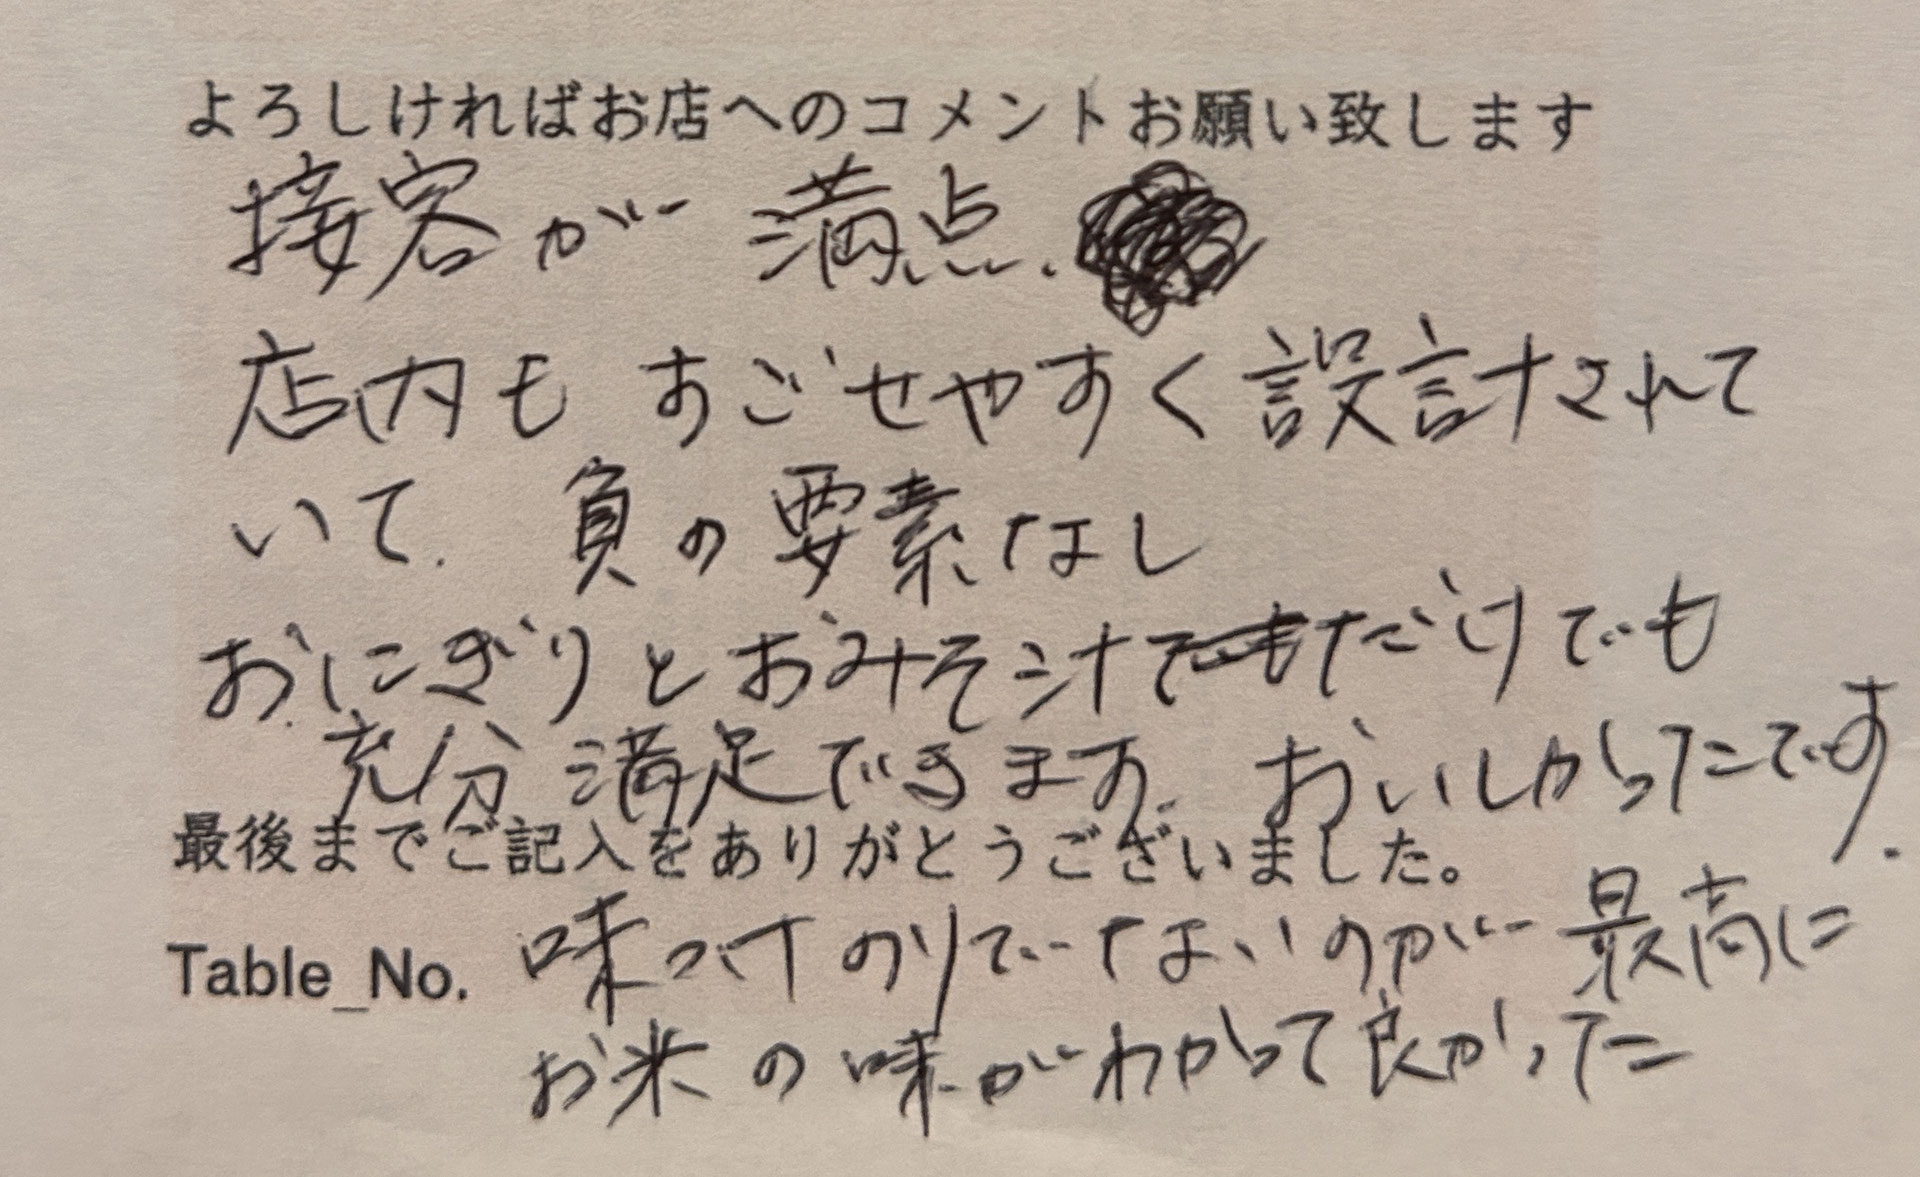 よろしければお店へのコメントお願い致します
接客が 満点.
店内も すごせやすく設計されて
いて. 負の要素なし
おにぎりとおみそ汁でもだけでも
充分満足できます. おいしかったです.
最後までご記入をありがとうございました。
Table_No. 味つけのりでないのが最高に
お米の味がわかって良かった